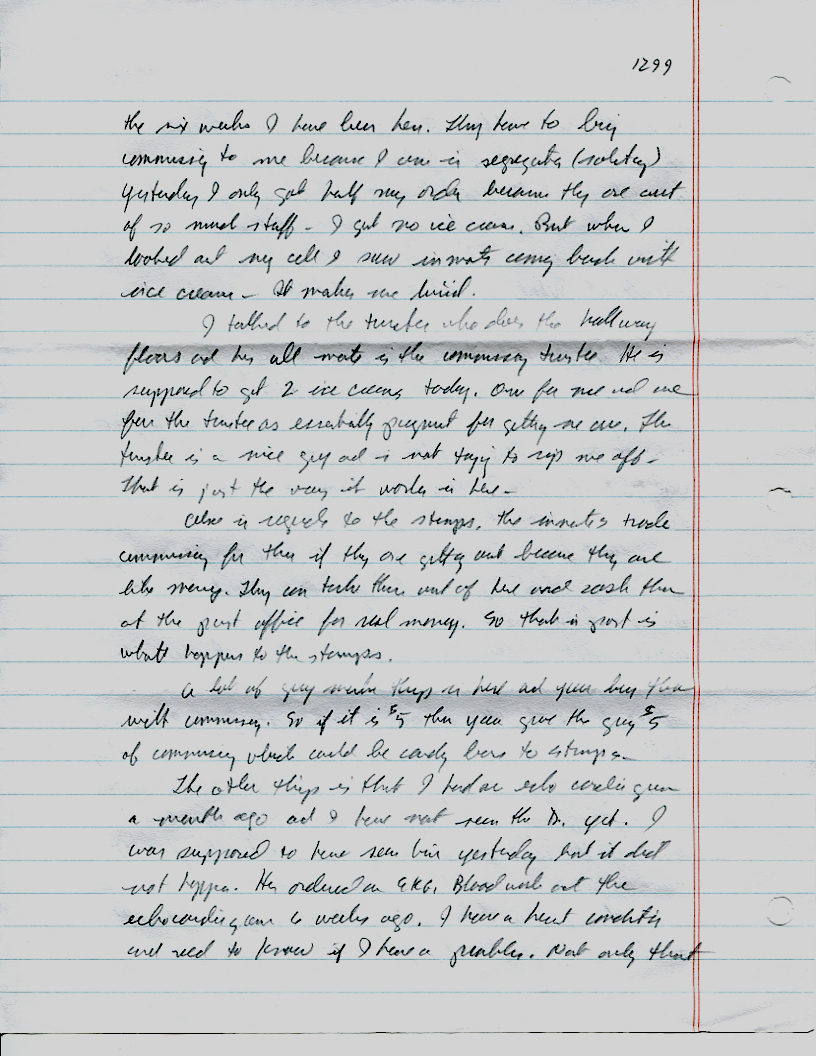 1299
the six weeks I have been here. They have to bring
commissary to me because I am in segregation (solitary)
yesterday I only got half my order because they are out
of so much stuff - I got no ice cream. But when I
looked out my cell I saw inmates coming back with
ice cream - It makes me livid.
I talked to the trustee who does the hallway
floors and his cell mate is the commissary trustee. He is
supposed to get 2 ice creams today. One for me and one
for the trustee as essentially payment for getting me one. The
trustee is a nice guy and is not trying to rip me off -
That is just the way it works in here -
Also in regards to the stamps, the inmates trade
commissary for them if they are getting out because they are
like money. They can take them out of here and cash them
at the post office for real money. So that in part is
what happens to the stamps.
A lot of guys make things in here and you buy them
with commissary. So if it is $5 then you give the guy $5
of commissary which could be candy bars to stamps -
The other things is that I had an echo cardiogram
a month ago and I have not seen the Dr. yet. I
was supposed to have seen him yesterday but it did
not happen. He ordered an EKG, Blood work and the
echocardiogram 6 weeks ago. I have a heart condition
and need to know if I have a problem. Not only that